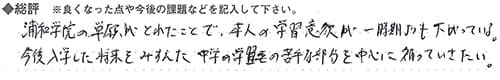 ◆総評 ※良くなった点や今後の課題などを記入して下さい。
浦和学院の単願がとれたことで、本人の学習意欲が一時期よりも下がっている。
今後入学した将来をみすえた中学の学習の苦手な部分を中心に補っていきたい。